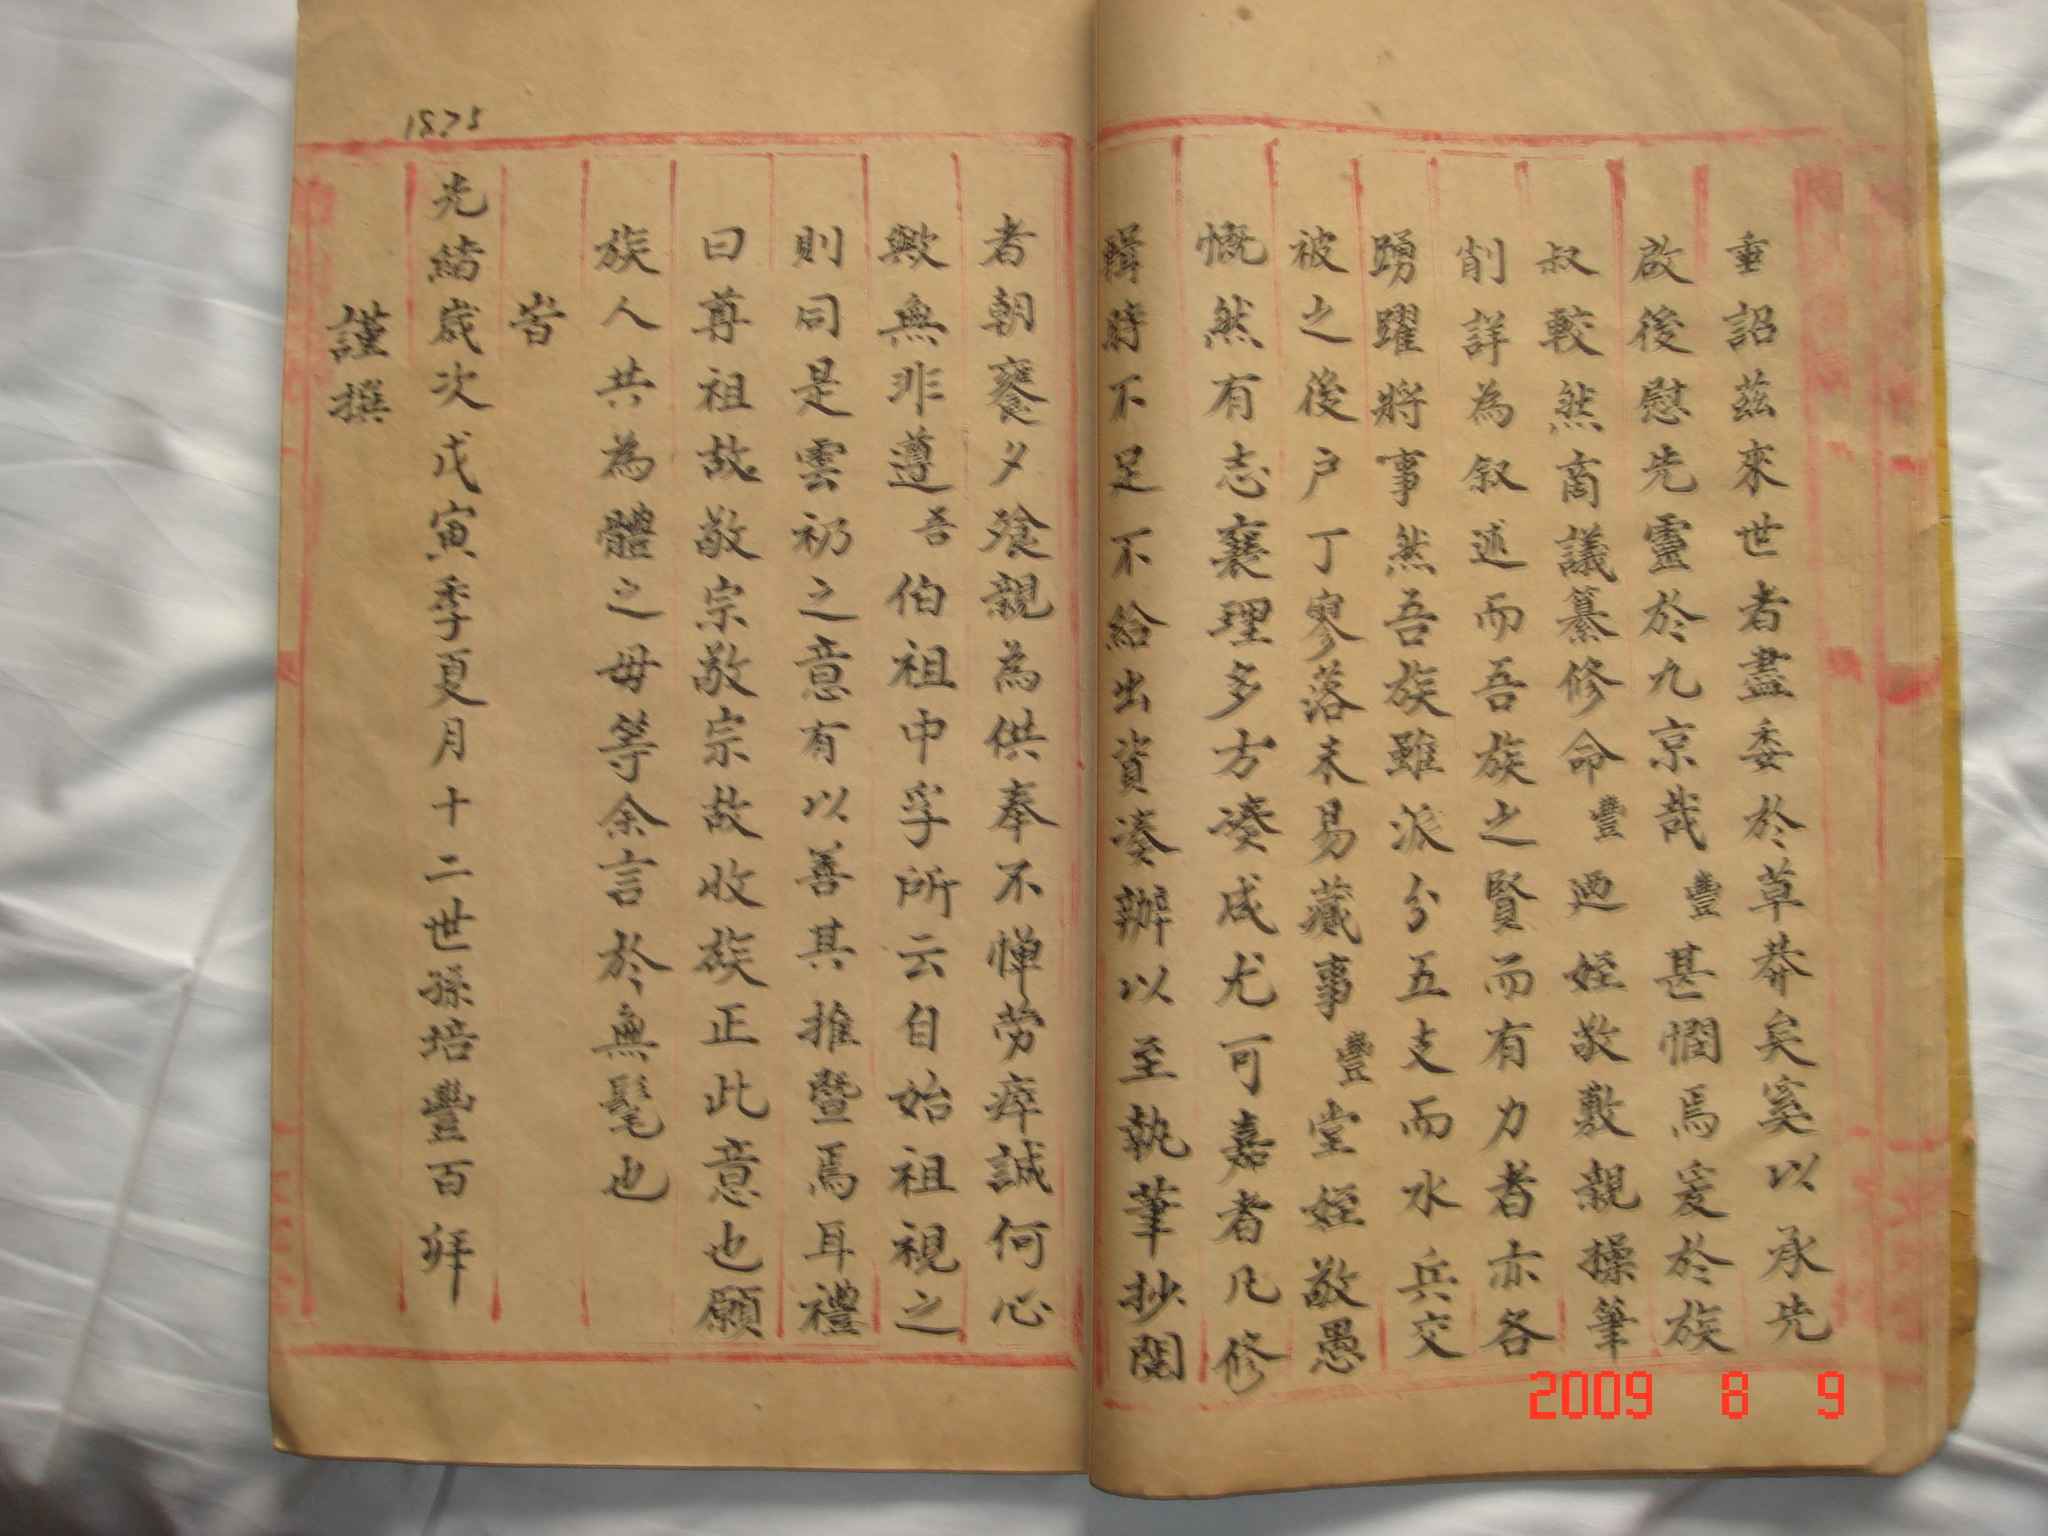 垂詔茲來世者盡委於草莽矣奚以承先
啟後慰先靈於九京哉豐甚憫焉爰於族
叔較然商議纂修命豐迺姪敬敷親操筆
削詳為叙述而吾族之賢而有力者亦各
踴躍將事然吾族雖派分五支而水兵交
被之後户丁寥落未易蕆事豐堂姪敬愚
慨然有志襄理多方湊成尤可嘉者凡修
輯時不足不給出資湊辦以至執筆抄閱
者朝饔夕飱親為供奉不憚勞瘁誠何心
歟無非遵吾伯祖中孚所云自始祖視之
則同是雲礽之意有以善其推暨焉耳禮
曰尊祖故敬宗敬宗故收族正此意也願
族人共為體之毋等余言於無髦也
旹
1875
光緒歲次戊寅季夏月十二世孫培豐百拜
謹撰
2009 8 9